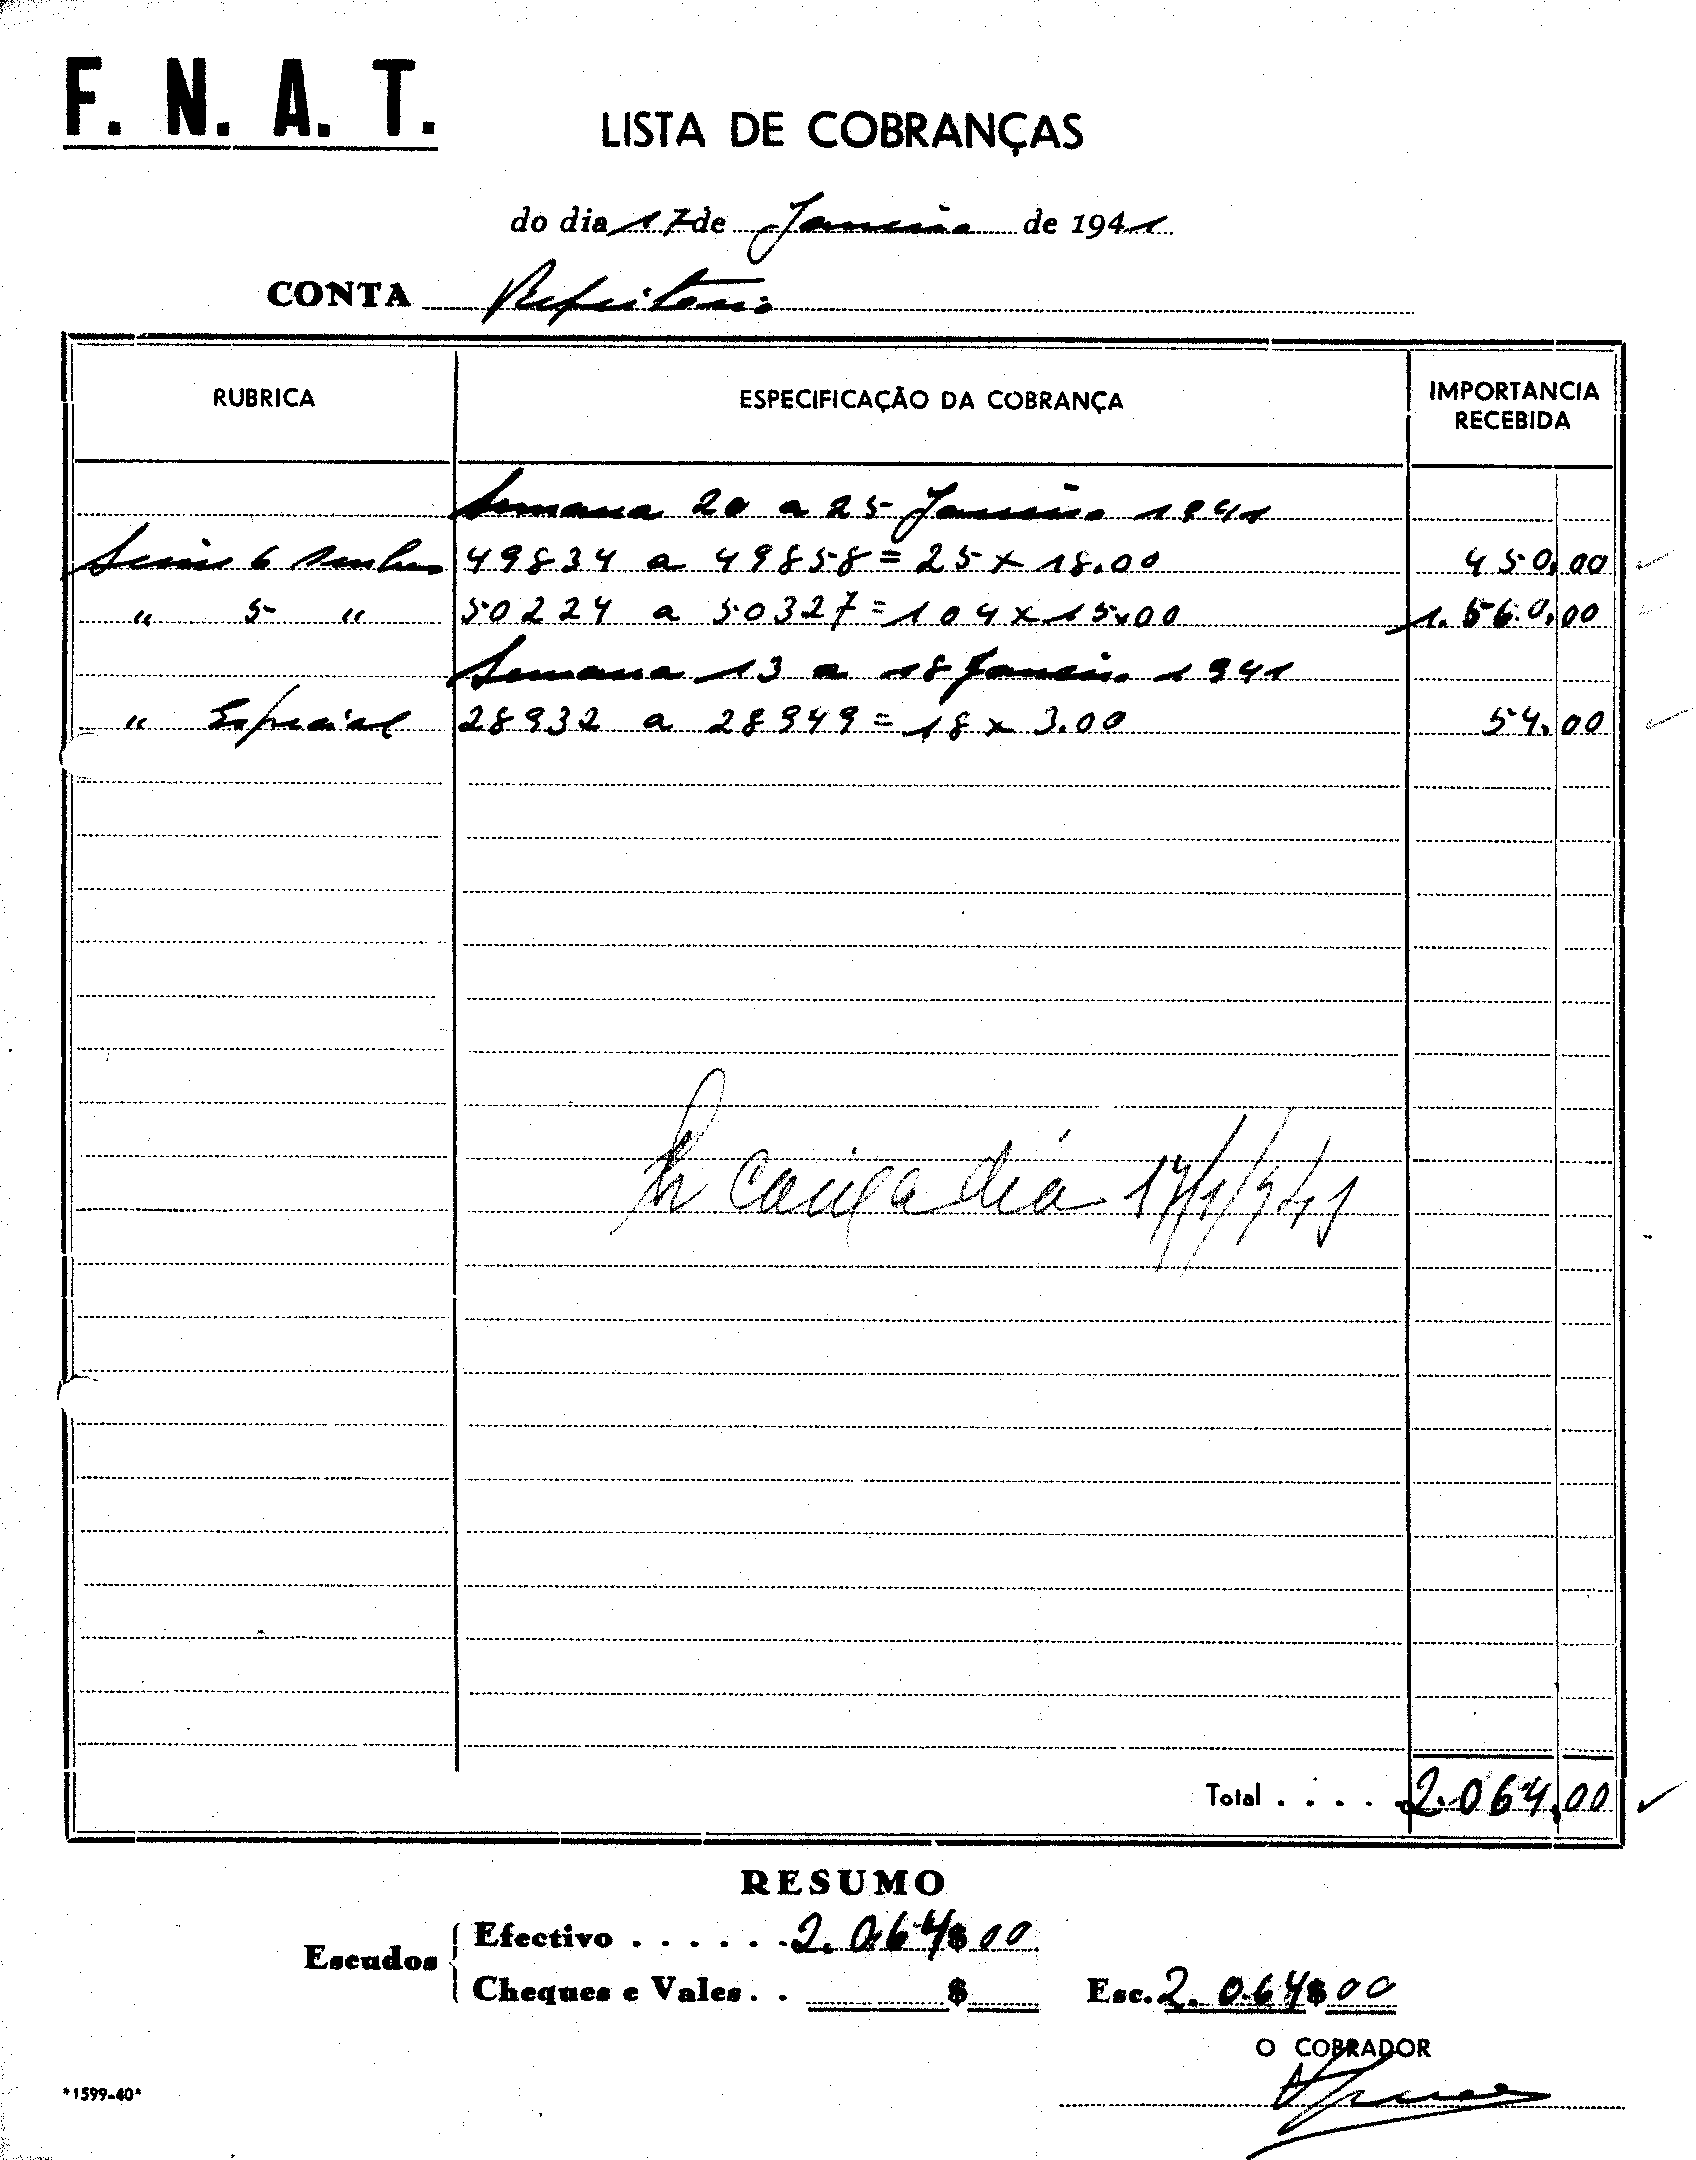 F. N. A. T.
LISTA DE COBRANÇAS
do dia 17 de Janeiro de 1941
CONTA Refeitorio
RUBRICA ESPECIFICAÇÃO DA COBRANÇA IMPORTANCIA RECEBIDA
Semana 20 a 25 Janeiro 1941
Serie 6 senhas 49834 a 49858 = 25 x 18.00 450,00
" 5 " 50224 a 50327 = 104 x 15.00 1.560,00
Semana 13 a 18 Janeiro 1941
" Especial 28932 a 28949 = 18 x 3.00 54,00
caixa dia 17/1/941
Total . . . . 2.064,00
RESUMO
Escudos
Efectivo . . . . . . 2.064$00
Cheques e Vales . . $ Esc. 2.064$00
O COBRADOR
*1599-40*